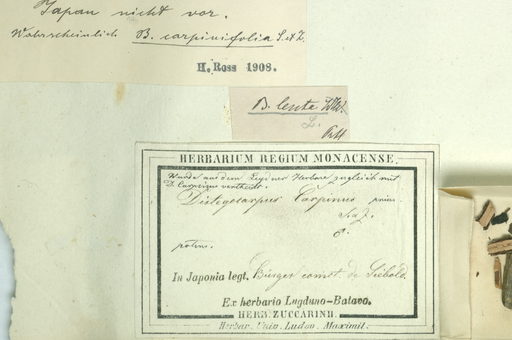 Japan nicht vor.
Wahrscheinlich B. carpinifolia S. et Z.
H. Ross 1908.
B. lenta Willd.
L.
HERBARIUM REGIUM MONACENSE.
Wurde aus dem Leydener Herbare zugleich mit
D. Carpinus vertheilt.
Distegocarpus Carpinus
S. et Z.
In Japonia legt. Bürger comt. de Siebold
Ex herbario Lugduno-Batavo.
HERB. ZUCCARINII.
Herbar. Univ. Ludov. Maximil.